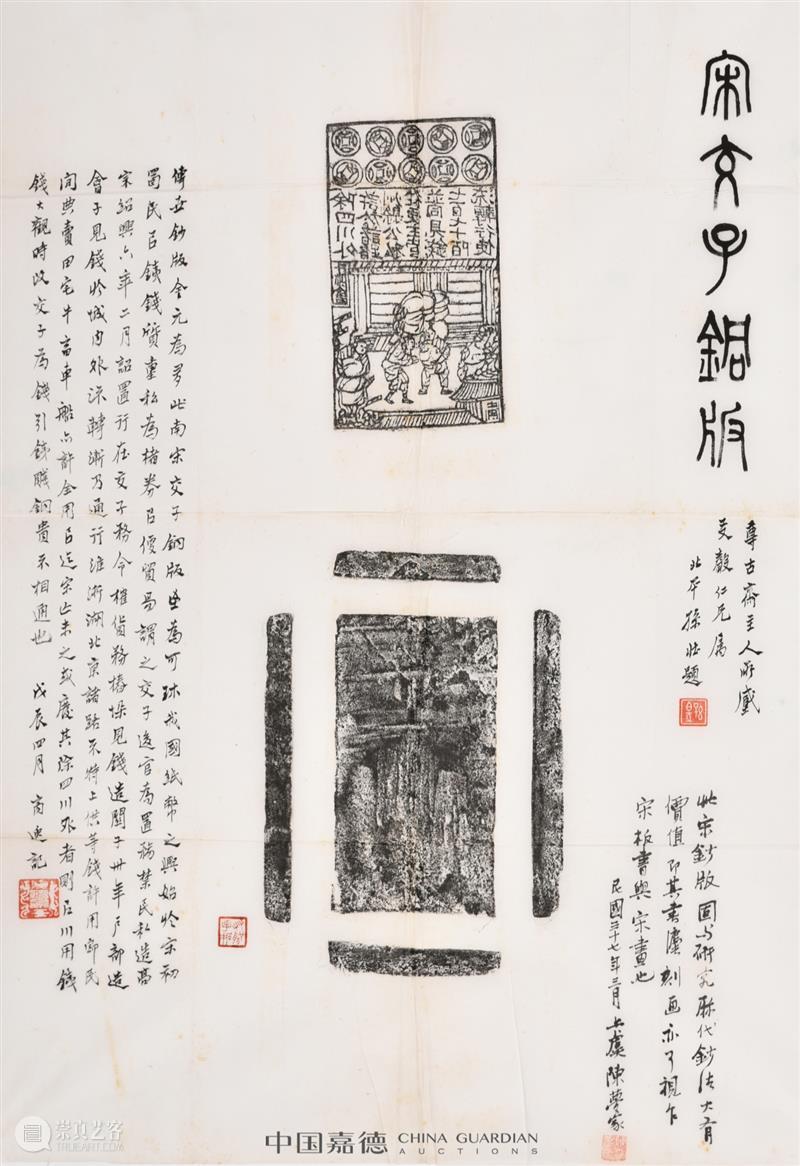 宋交子銅版
尊古齋主人所藏
毅仁兄屬
北平孫壯題
此宋鈔版固与研究歷代鈔法大有
價值即其書法刻画亦可視乍
宋板書與宋畫也
民國三十七年三月 上虞陳夢家
除四川外
許於諸路
州縣公私
從便主管
並同見錢
七百七十陌
流轉行使
傳世鈔版金元為多此南宋交子銅版 為可珎我國紙幣之興始於宋初
蜀民以鐵錢質重私為楮券以便貿易謂之交子後官為置務禁民私造高
宋紹興六年二月詔置行在交子務令榷貨務樁垜見錢造關子卅年戶部造
會子見錢於城內外流轉漸乃通行淮浙湖北京諸路不特上供等錢許用即民
間典賣田宅牛畜車船亦許全用以迄宋亡未之或廢其除四川外者則以川用鐵
錢大觀時改交子為錢引鐵賤銅貴不相通也 戊辰四月 商 記
崇真艺客
中国嘉德 CHINA GUARDIAN
AUCTIONS